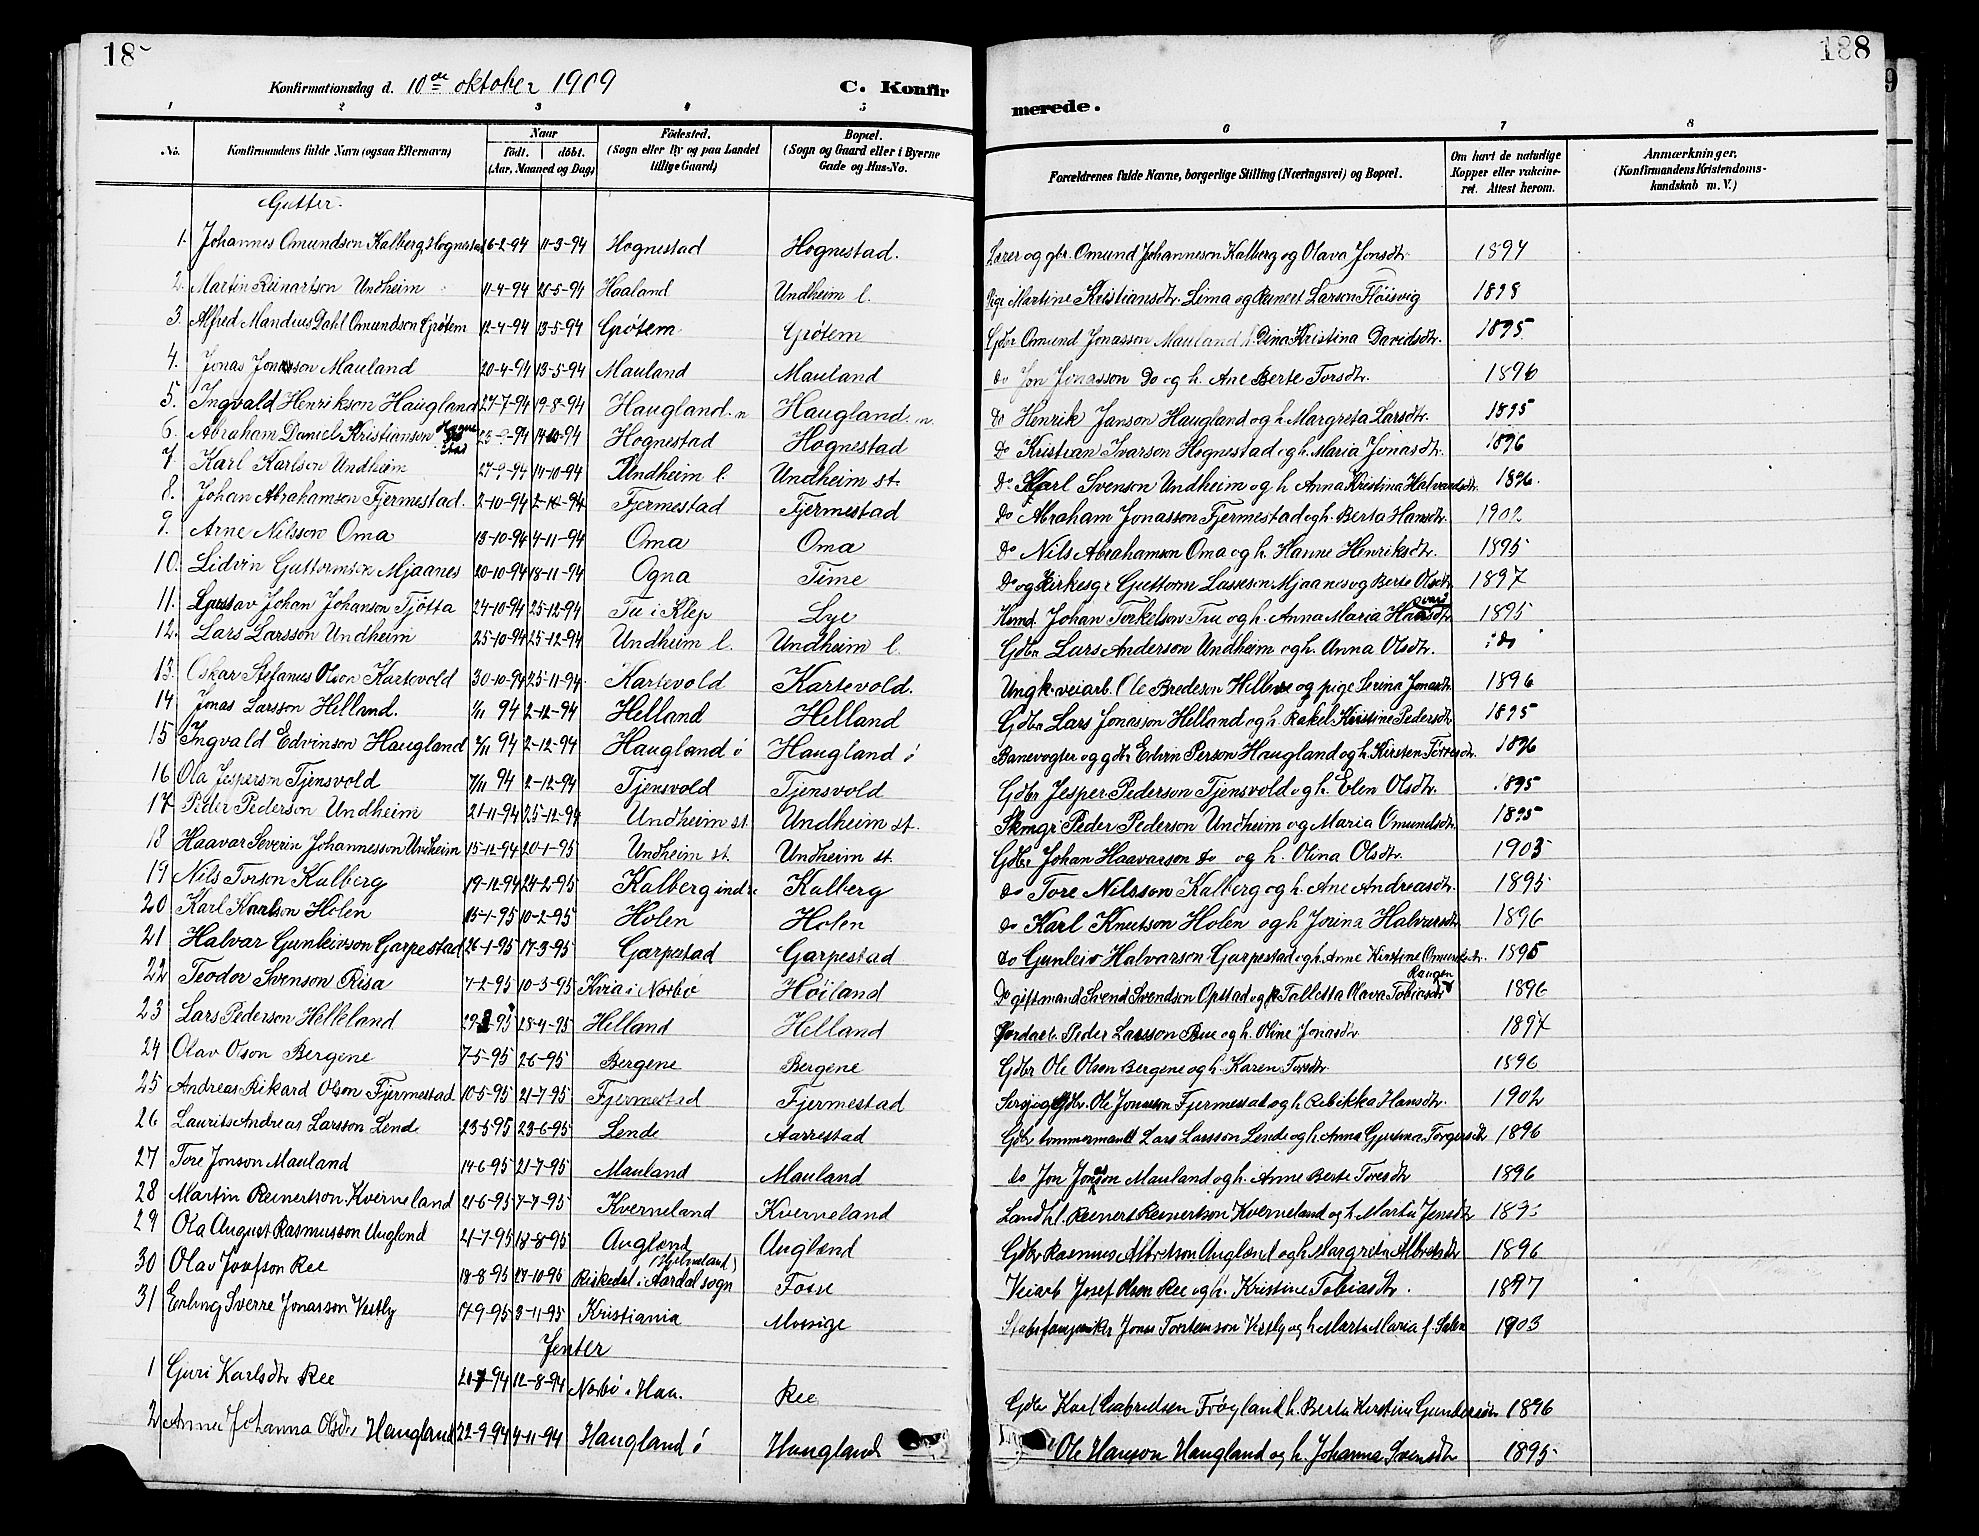 18
Konfirmationsdag d. 10de oktober 1909
C. Konfir
1 2 3 4 5
No.
Konfirmandens fulde Navn (ogsaa Efternavn)
Naar
født. døbt.
(Aar, Maaned og Dag)
Fødested.
(Sogn eller By og paa Landet
tillige Gaard)
Bopæl.
(Sogn og Gaard eller i Byerne
Gade og Hus-No.
Gutter.
1. Johannes Omundson Kalberg, Hognestad 16-2-94 11-3-94 Hognestad Hognestad.
2. Martin Reinartson Undheim 11-4-94 25-5-94 Haaland Undheim l.
3. Alfred Mandius Dahl Omundson Grøtem 12-4-94 13-5-94 Grøtem Grøtem
4. Jonas Jonasson Mauland 20-4-94 13-5-94 Mauland Mauland
5. Ingvald Henrikson Haugland 27-7-94 19-8-94 Haugland. n Haugland. n.
6. Abraham Daniel Kristianson Hognestad 23-9-94 14-10-94 Hognestad Hognestad
7. Karl Karlson Undheim 27-9-94 14-10-94 Undheim l. Undheim st.
8. Johan Abrahamson Fjermestad. 2-10-94 2-12-94 Fjermestad Fjermestad
9. Arne Nilsson Oma 13-10-94 4-11-94 Oma Oma
10. Lidvin Guttormson Mjaanes 20-10-94 18-11-94 Ogna Time
11. Gustav Johan Johanson Tjøtta 24-10-94 25-12-94 Tu i Klep Lye
12. Lars Larsson Undheim 25-10-94 25-12-94 Undheim l. Undheim l.
13. Oskar Stefanus Olson Kartevold 30-10-94 25-11-94 Kartevold Kartevold.
14 Jonas Larsson Helland. 1/11 94 2-12-94 Helland Helland
15 Ingvald Edvinson Haugland 2/11 94 2-12-94 Haugland ø Haugland ø
16 Ola Jesperson Tjensvold 7/11 94 2-12-94 Tjensvold Tjensvold
17 Peder Pederson Undheim 21-11-94 25-12-94 Undheim st. Undheim st.
18 Haavar Severin Johannesson Undheim 15-12-94 20-1-95 Undheim st. Undheim st.
19 Nils Torson Kalberg 19-12-94 24-2-95 Kalberg indre Kalberg
20 Karl Karlson Holen 15-1-95 10-2-95 Holen Holen
21 Halvar Gunleivson Garpestad 26-1-95 17-3-95 Garpestad Garpestad
22 Teodor Svenson Risa 7-2-95 10-3-95 Kvia i Nærbø Høiland
23 Lars Pederson Helleland 29-3-95 28-4-95 Helland Helland
24 Olav Olson Bergene 7-5-95 2 6-95 Bergene Bergene
25 Andreas Rikard Olson Fjermestad 10-5-95 21-7-95 Fjermestad Fjermestad
26 Laurits Andreas Larsson Lende 23-5 95 23-6-95 Lende Aarrestad
27 Tore Jonson Mauland 14-6-95 21-7-95 Mauland Mauland
28 Martin Reinertson Kverneland 21-6-95 7-7-95 Kverneland Kverneland
29 Ola August Rasmusson Auglend 21-7-95 18-8-95 Auglænd Auglænd
30 Olav Josefson Ree 18-8-95 27-10-95 Riskedal i Aardal sogn (Hjelmeland) Fosse
31 Erling Sverre Jonasson Vestly 17-9-95 3-11-95 Kristiania Mossige
Jenter
1 Guri Karlsdtr Ree 20-7-94 12-8-94 Nærbø i Haa. Ree
2 Anna Johanna Olsdtr Haugland 22-9-94 4-11-94 Haugland ø Haugland
188
9
merede.
6 7 8
Forældrenes fulde Navne, borgerlige Stilling (Næringsvei) og Bopæl.
Om havt de naturlige
Kopper eller vaccine-
ret. Attest herom.
Anmærkninger.
(Konfirmandens Kristendoms-
kundskab m. V.)
Lærer og gbr. Omund Johanneson Kalberg og Olava Jonsdtr. 1894
Pige Martine Kristiansdtr. Lima og Reinert Larson Fløisvig 1898
Gdbr Omund Jonasson Mauland h. Dina Kristina Davidsdtr. 1895
do Jon Jonasson Do og h. Ane Berte Torsdtr. 1896
do Henrik Janson Haugland og h. Margreta Larsdtr. 1895
do Kristian Ivarson Hognestad og h. Maria Jonasdtr. 1896
Do. Karl Svenson Undheim og h Anna Kristina Halvardsdtr. 1896.
do Abraham Jonasson Fjermestad og h. Berta Hansdtr. 1902
do Nils Abrahamson Oma og h. Hanne Henriksdtr. 1895
Do og Kirkesgr Guttorm Lasseson Mjaanes og Berte Olsdtr 1897
Hmd. Johan Torkelson Tru og h. Anna Maria Hansdtr. 1895
Gdbr Lars Anderson Undheim og h. Anna Olsdtr. do
Ungk. veiarb. Ole Bredeson Hillevåg og pige Serina Jonasdtr. 1896
Gdbr Lars Jonasson Helland og h. Rakel Kristine Pedersdtr 1895
Banevogter og gdbr Edvin Person Haugland og h. Kirsten Tørresdtr. 1896
Gdbr Jesper Pederson Tjensvold og h. Elen Olsdtr. 1895
Skmgr. Peder Pederson Undheim og Maria Omundsdtr. 1895
Gdbr Johan Haavarson do og h. Olina Olsdtr. 1903
do Tore Nilsson Kalberg og h. Ane Andreasdtr. 1895
do Karl Knutson Holen og h Jorina Halvarsdtr 1896
do Gunleiv Halvarson Garpestad og h. Anne Kirstine Omundsdtr. 1895
Do giftmand Svend Svendson Opstad og p. Talletta Olava Tobiasdtr 1896
Jordarb. Peder Larsson Bue og h. Oline Jonasdtr 1897
Gdbr Ole Olson Bergene og h. Karen Torsdtr 1896
Gdbr. Ole Jonasson Fjermestad og h Rebikka Hansdtr. 1902
Gdbr tømmermand Lars Larsson Lende og h. Anna Gurina Torgersdtr 1896
do Jon Jonasson Mauland og h. Anne Berte Toresdtr 1896
Landhl. Reinert Reinertson Kverneland og h Marta Jensdtr 189
Gdbr Rasmus Albretson Auglænd og h Margreta Albretsdtr 1896
Veiarb Josef Olson Ree og h. Kristine Tobiasdtr. 1897
Jonas Torstenson Vestly og h Marta Maria f. Salen 1903
Gdbr Karl Gabrielsen Frøyland h. Berta Kirstine Gundersdtr 1896
Ole Hanson Haugland og h. Johanna Svensdtr 1895